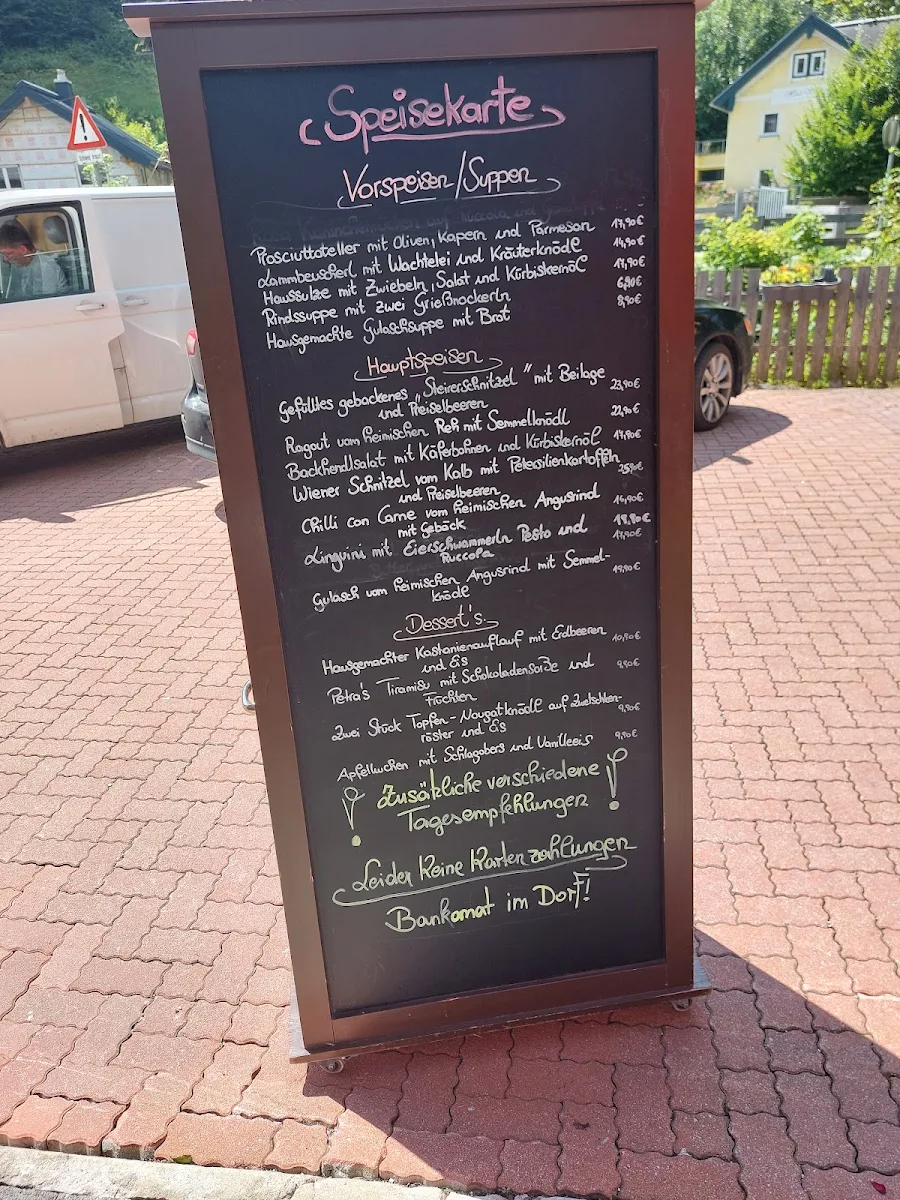 Speisekarte
Vorspeisen/Suppen
Prosciuttoteller mit Oliven, Kapern und Parmesan 17,90€
Lammbeuscherl mit Wachtelei und Kräuterknödl 14,90€
Haussulze mit Zwiebeln, Salat und Kürbiskernöl 11,90€
Rindssuppe mit zwei Grießnockerln 6,90€
Hausgemachte Gulaschsuppe mit Brot 8,90€
Hauptspeisen
Gefülltes gebackenes "Steirerschnitzel" mit Beilage
und Preiselbeeren 23,90€
Ragout vom heimischen Reh mit Semmelknödl 22,90€
Backhendlsalat mit Käferbohnen und Kürbiskernöl 17,90€
Wiener Schnitzel vom Kalb mit Petersilienkartoffeln
und Preiselbeeren 25,90€
Chilli con Carne vom heimischen Angusrind
mit Gebäck 16,90€
Linguini mit Eierschwammerln Pesto und 18,80€
Ruccola 17,90€
Gulasch vom heimischen Angusrind mit Semmel-
knödl 19,90€
Dessert's.
Hausgemachter Kastanienauflauf mit Erdbeeren
und Eis 10,90€
Petra's Tiramisu mit Schokoladensoße und
Früchten 9,90€
Zwei Stück Topfen-Nougatknödl auf Zwetschken-
röster und Eis 9,90€
Apfelkuchen mit Schlagobers und Vanilleeis 9,90€
! Zusätzliche verschiedene !
Tagesempfehlungen
Leider keine Kartenzahlungen
Bankomat im Dorf!